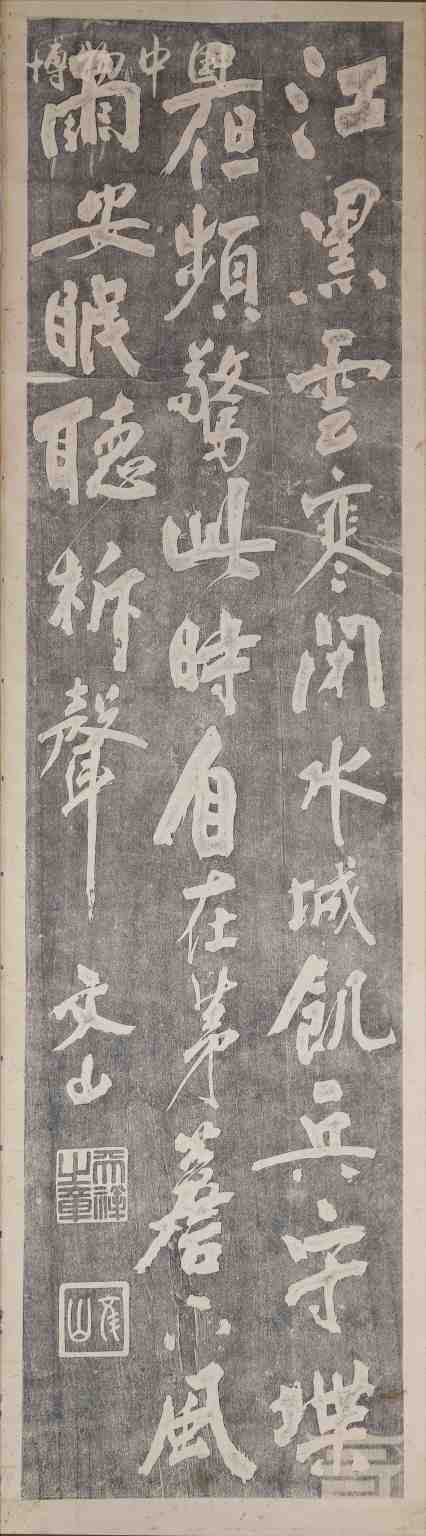 江黑雲寒閉水城飢兵守堞
頻驚此時自在茅簷下風
雨安眠聽柝聲
文山
天祥之章
文山
博物中国